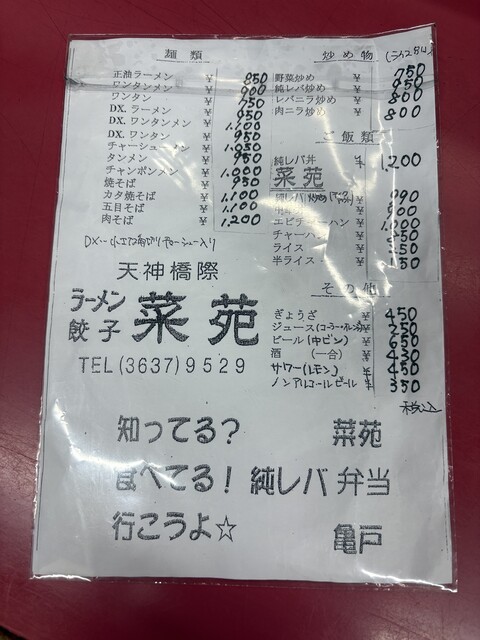 麺類
正油ラーメン ¥ 850
ワンタンメン ¥ 900
ワンタン ¥ 750
DX. ラーメン ¥ 950
DX. ワンタンメン ¥ 1,000
DX. ワンタン ¥
チャーシューメン ¥ 1,050
タンメン ¥ 950
チャンポンメン ¥ 1,000
焼そば ¥ 950
カタ焼そば ¥ 1,100
五目そば ¥ 1,100
肉そば ¥ 1,200
炒め物
野菜炒め ¥ 750
純レバ炒め ¥ 950
レバニラ炒め ¥ 800
肉ニラ炒め ¥ 800
ご飯類
純レバ丼 ¥ 1,200
菜苑
純レバ炒め 990
エビチャーハン ¥ 1,000
チャーハン ¥
ライス ¥
半ライス ¥
その他
ぎょうざ ¥ 450
ジュース(コーラ・オレンジ) ¥
ビール(中ビン) ¥
酒 (一合) ¥
サワー(レモン) ¥ 450
ノンアルコールビール ¥ 350
税込
天神橋際
ラーメン
餃子
菜苑
TEL(3637)9529
知ってる? 菜苑
食べてる! 純レバ弁当
行こうよ☆ 亀戸